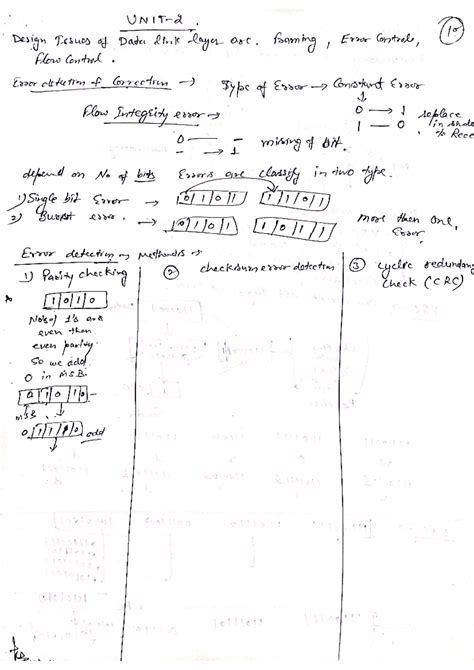 UNIT-2.
10
Design Issues of Data Link layer are. framing, Error Control,
Flow Control.
Error detection & Correction → Type of Error → Constant Error
0 → 1 replace
1 — 0
Flow Integrity error →
0 — —
— → 1 missing of bit.
depend on No of bits Errors are classify in two type.
1) Single bit Error → 0101 1101
2) Burst error. → 0101 1011 more then one,
Error.
Error detection → Methods →
1) Parity checking
1010
No's of 1's are
even then
even parity.
So we add
0 in M.S.B.
01010
MSB
0 1110 odd
② checksum error detection
③ cyclic redundan
check (CRC)